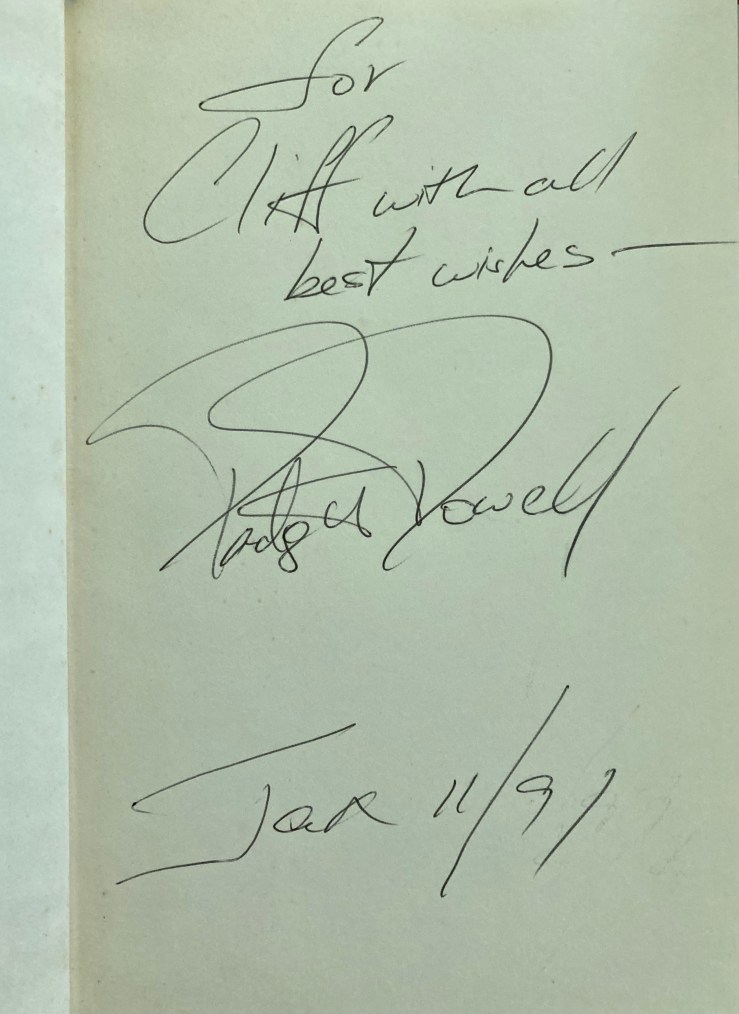 for
Cliff with all
best wishes—
Padgett Powell
Jax 11/91